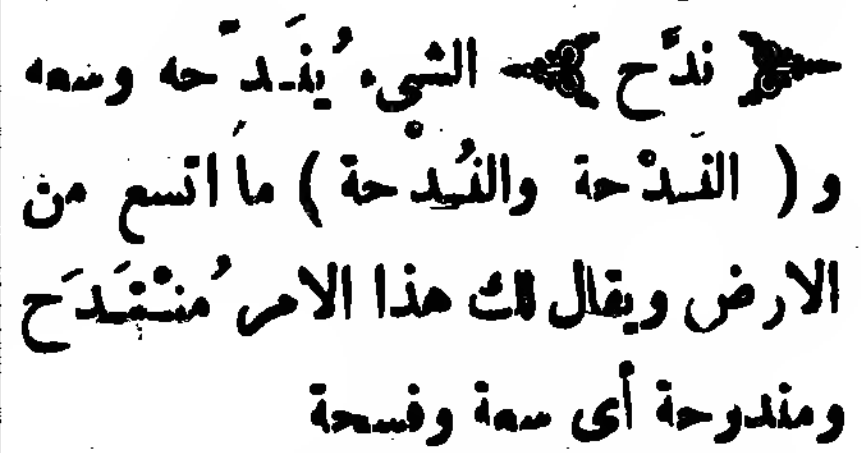 ﴿ ندَّح ﴾ الشيء يُنَدِّحه وسعه
و ( النَدْحة والنُدْحة ) ما اتسع من
الارض ويقال لك هذا الامر مُنْتَدَح
ومندوحة أى سعة وفسحة